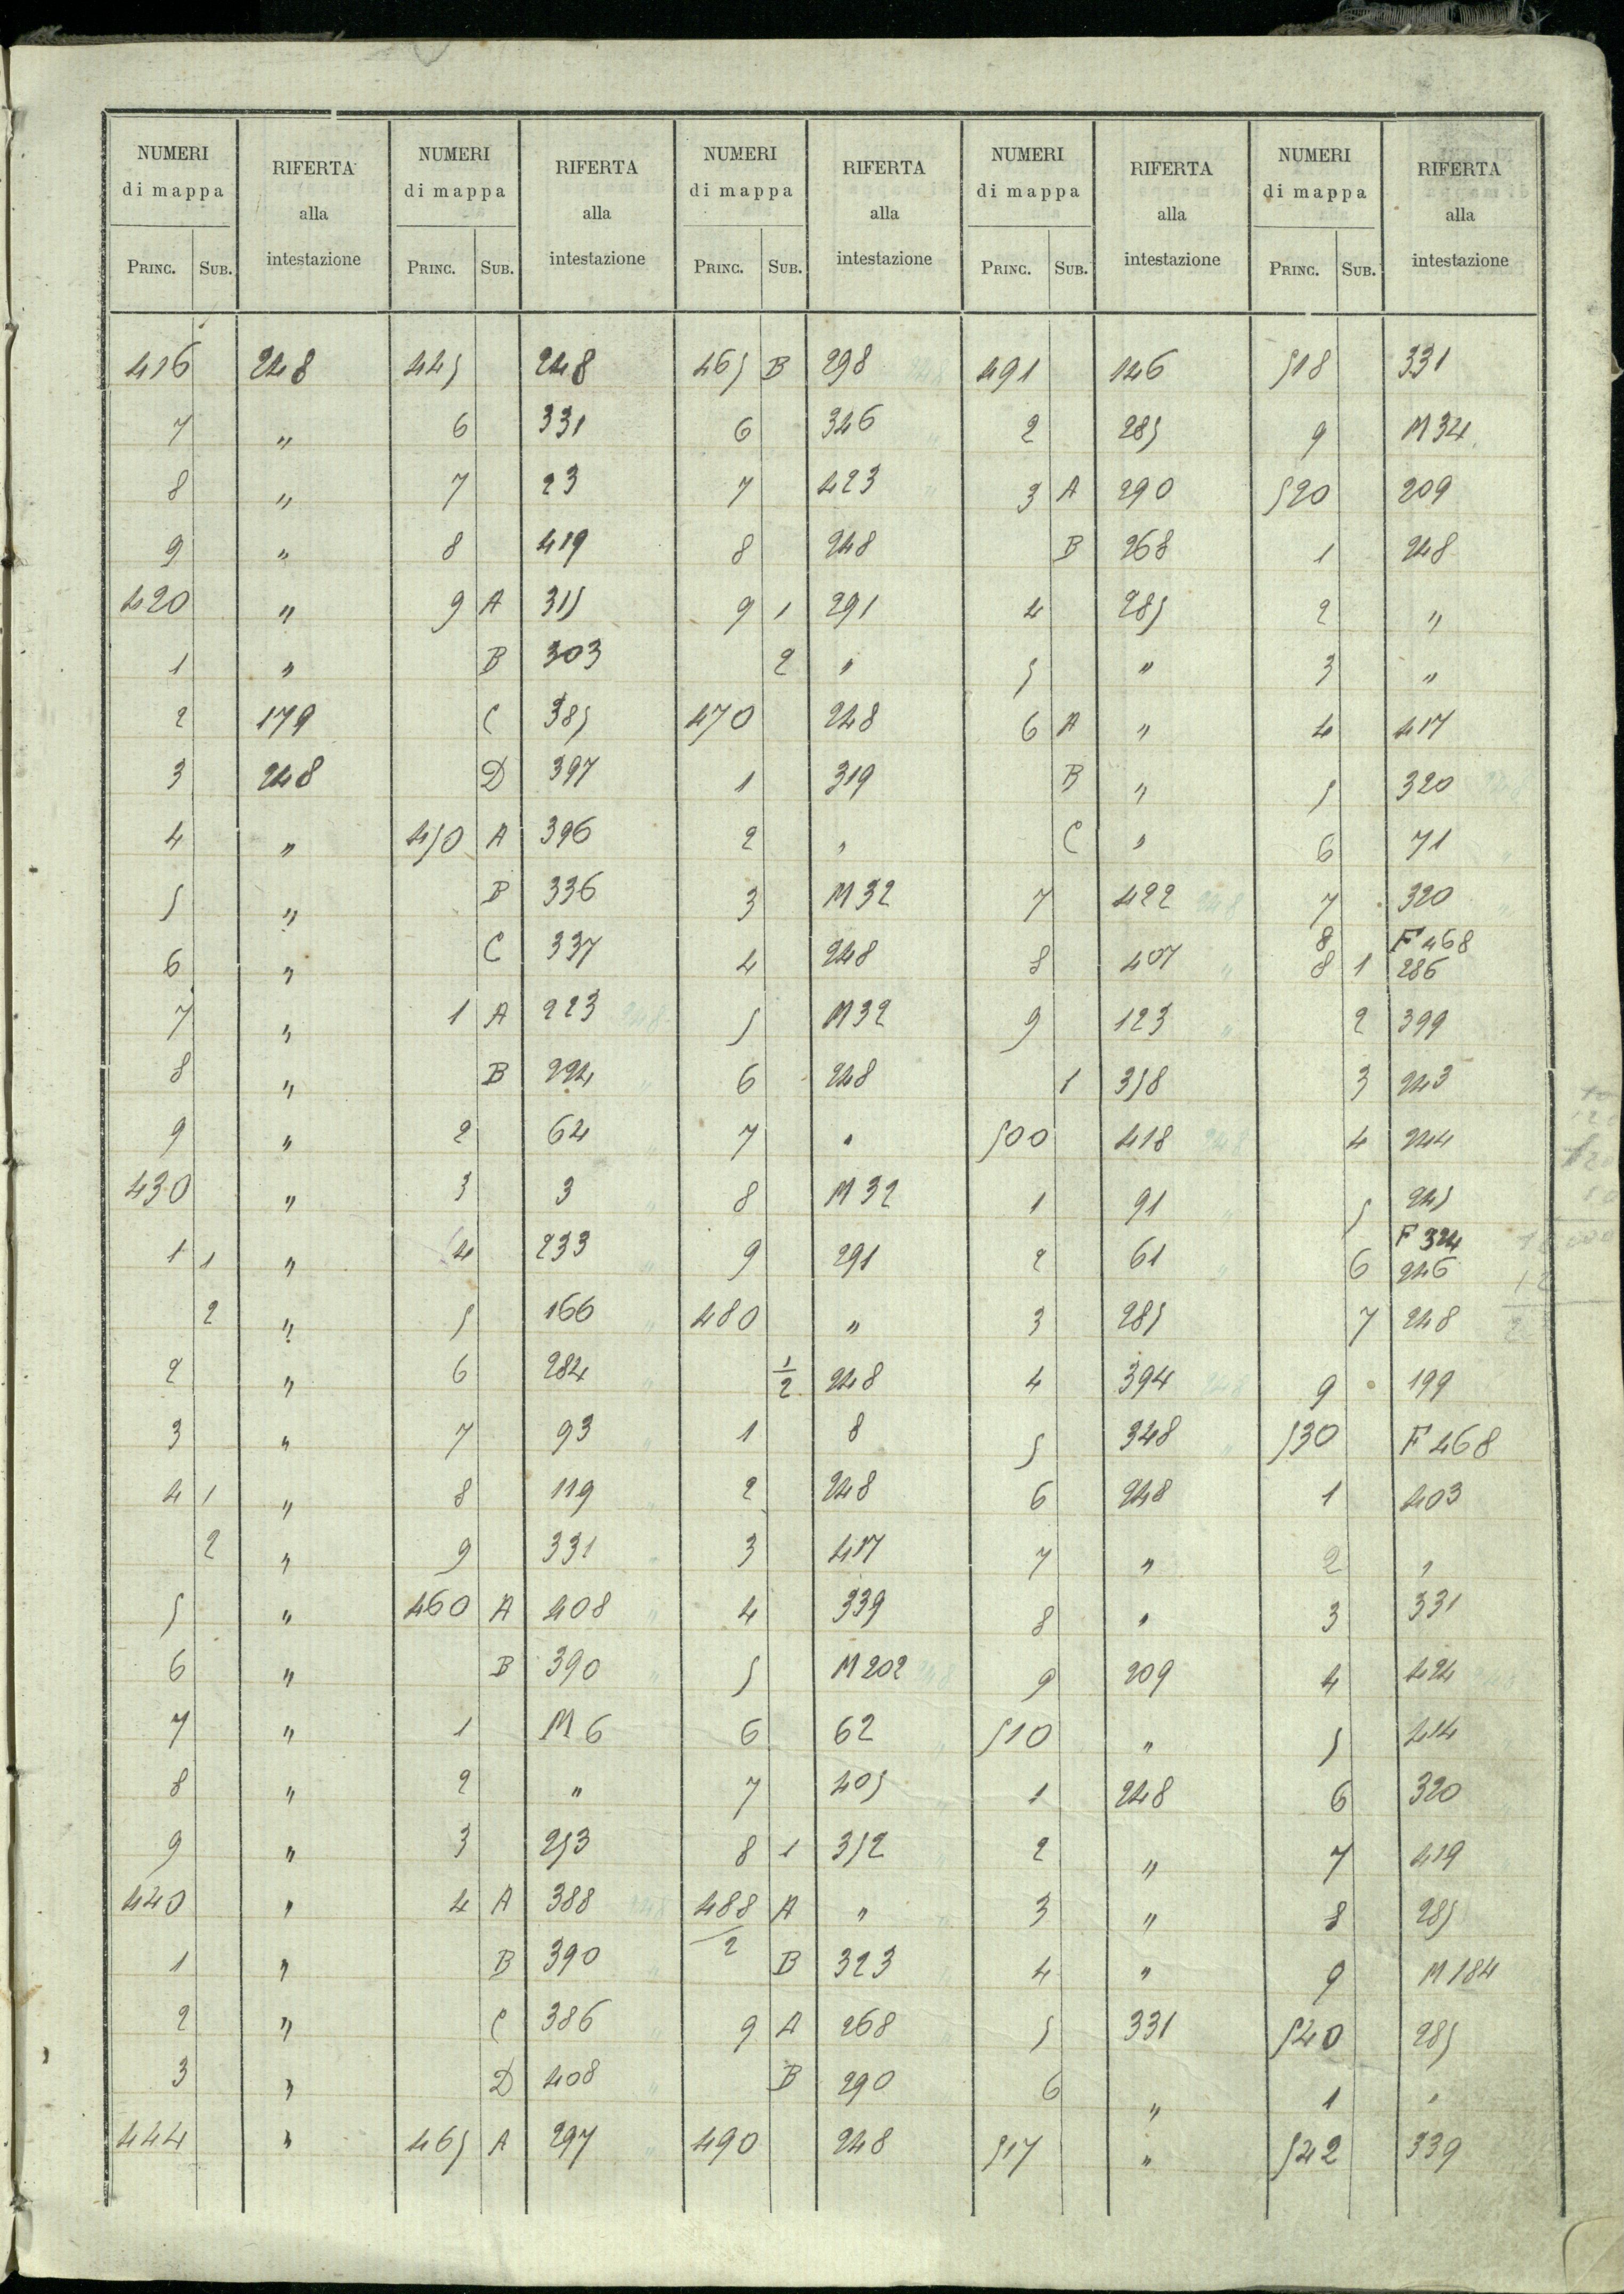 NUMERI di mappa RIFERTA alla intestazione NUMERI di mappa RIFERTA alla intestazione NUMERI di mappa RIFERTA alla intestazione NUMERI di mappa RIFERTA alla intestazione NUMERI di mappa RIFERTA alla intestazione
PRINC. SUB. PRINC. SUB. PRINC. SUB. PRINC. SUB. PRINC. SUB.
416 248 445 248 465 B 298 491 146 518 331
7 " 6 331 6 346 2 285 9 M 34
8 " 7 23 7 423 3 A 290 520 209
9 " 8 419 8 248 B 268 1 248
420 " 9 A 315 9 1 291 4 285 2 "
1 " B 303 2 " 5 " 3 "
2 179 C 385 470 248 6 A " 4 417
3 248 D 397 1 319 B " 5 320
4 " 450 A 396 2 " C " 6 71
5 " B 336 3 M 32 7 422 7 320
6 " C 337 4 248 8 407 8 F 468
8 1 286
7 " 1 A 223 5 M 32 9 123 2 399
8 " B 224 6 248 1 358 3 243
9 " 2 64 7 " 500 418 4 244
430 " 3 3 8 M 32 1 91 5 245
1 1 " 4 233 9 291 2 61 F 324
6 246
2 " 5 166 480 " 3 285 7 248
2 " 6 284 1/2 248 4 394 9 199
3 " 7 93 1 8 5 348 530 F 468
4 1 " 8 119 2 248 6 248 1 403
2 " 9 331 3 417 7 " 2 "
5 " 460 A 408 4 339 8 " 3 331
6 " B 390 5 M 202 9 209 4 424
7 " 1 M 6 6 62 510 " 5 414
8 " 2 " 7 405 1 248 6 320
9 " 3 253 8 1 352 2 " 7 419
440 " 4 A 388 488/2 A " 3 " 8 285
1 " B 390 B 323 4 " 9 M 184
2 " C 386 9 A 268 5 331 540 285
3 " D 408 B 290 6 " 1 "
444 " 465 A 297 490 248 517 " 542 339